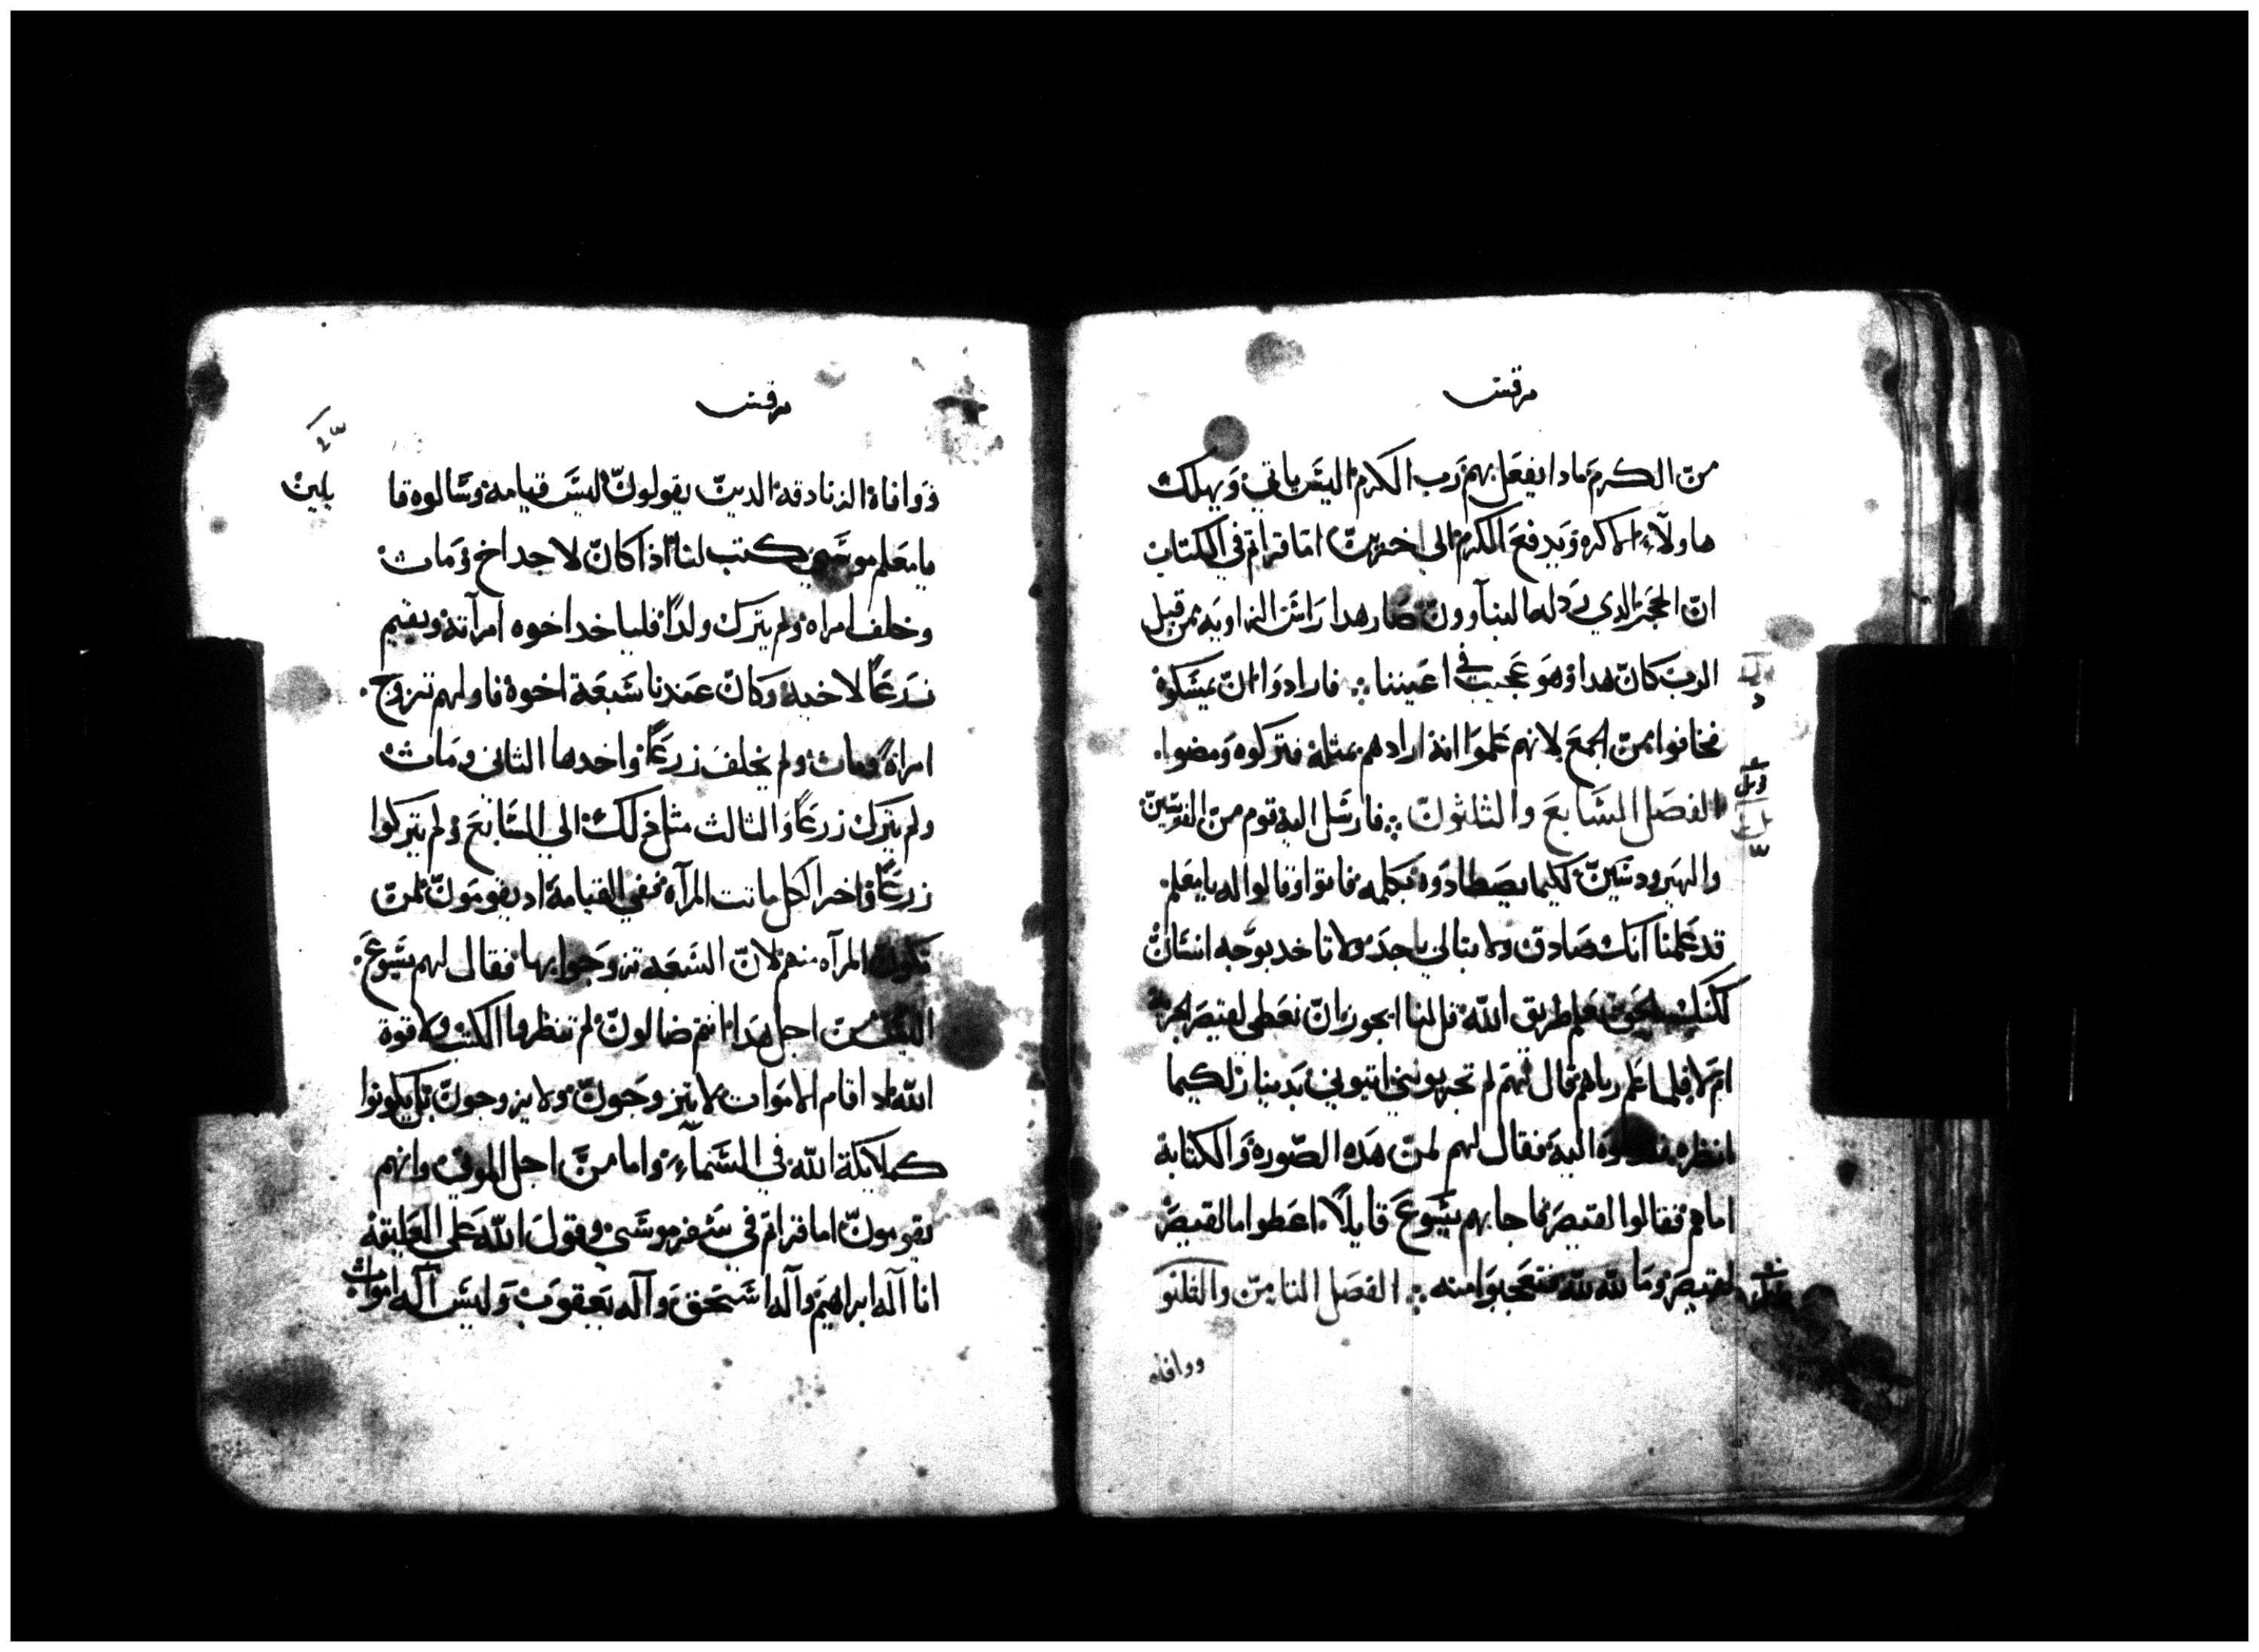 مرقس
من الكرم مادا يفعل بهم رب الكرم اليس ياتي ويهلك
هاولاء الاكره ويدفع الكرم الى اخرين اما قراتم في الكتاب
ان الحجر الدي ردله البناوون صار هدا راس الزاويه من قبل
الرب كان هدا وهو عجيب في اعيننا ⁘ فارادوا ان يمسكوه
فخافوا من الجمع لانهم علموا انه ارادهم بمثله فتركوه ومضوا
الفصل السابع والثلثون ⁘ فارسل اليه قوم من الفريسين
والهيرودسين لكيما يصطادوه بكلمه فاتوا وقالوا له يا معلم
قد علمنا انك صادق ولا تبالي باحد ولا تاخد بوجه انسان
لكنك بالحق تعلم طريق الله قل لنا ايجوز ان نعطى لقيصر الجزيه
ام لا فلما علم رياهم قال لهم لم تجربونني ايتوني بدينار لكيما
انظره اليه فقال لهم لمن هده الصورة والكتابة
اما هم فقالوا لقيصر فاجابهم يسوع قايلا اعطوا ما لقيصر
لقيصر وما لله لله فتعجبوا منه ⁘ الفصل الثامن والثلثو
ووافاه
مرقس
ووافاه الزنادقه الدين يقولون ليس قيامه وسالوه قا
يلين
يا معلم موسى كتب لنا اذا كان لاحد اخ ومات
وخلف امراه ولم يترك ولدا فلياخد اخوه امرآته ويقيم
زرعا لاخيه وكان عندنا سبعة اخوة فاولهم تزوج
امراة ومات ولم يخلف زرعا واخدها الثانى ومات
ولم يترك زرعا والثالث مثل دلك الي السابع ولم يتركوا
زرعا واخر الكل ماتت المرآه ففي القيامة اد يقومون لمن
تكون المرآه منهم لان السبعه تزوجوا بها فقال لهم يسوع
اليس من اجل هدا انتم ضالون لم تنظروا الكتب ولا قوة
الله اد اقام الاموات لا يتزوجون ولا يزوجون بل يكونوا
كملايكة الله في السماء واما من اجل الموتي وانهم
يقومون اما قراتم في سفر موسى وقول الله على العليقة
انا اله ابراهيم واله اسحق واله يعقوب وليس اله اموات